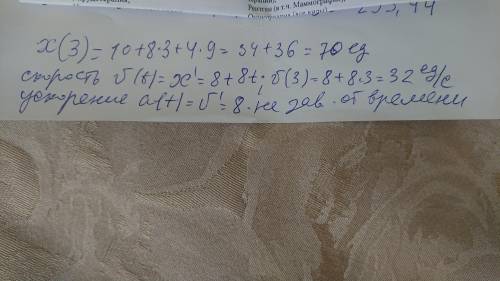 Рентген (в т.ч. Маммография,
x(3) = 10+8·3+4·9 = 34+36 = 70 ед
скорость v(t) = x' = 8+8t; v(3) = 8+8·3 = 32 ед/с
ускорение a(t) = v' = 8. не зав. от времени